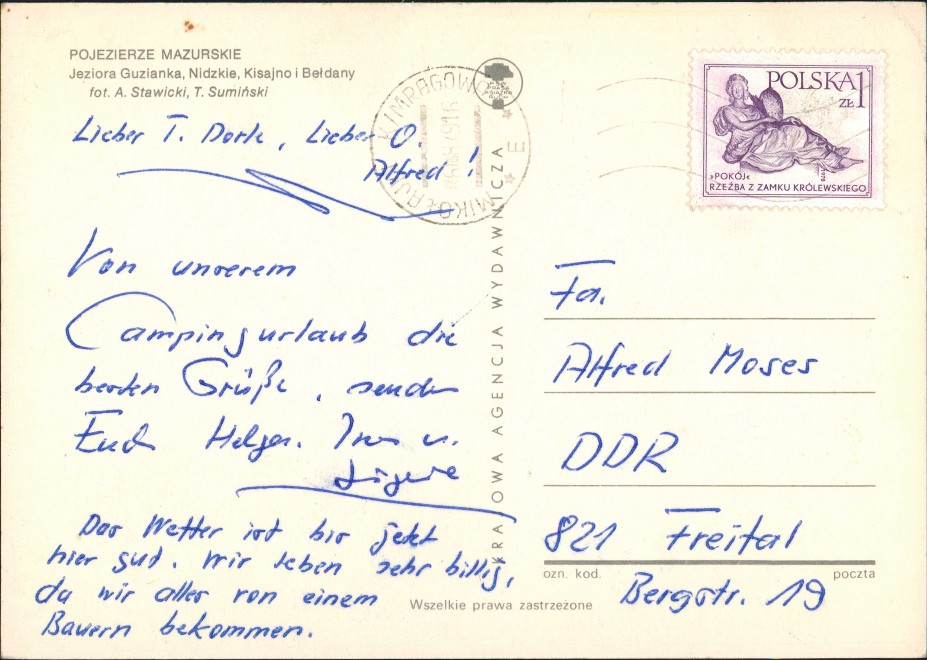 POJEZIERZE MAZURSKIE
Jeziora Guzianka, Nidzkie, Kisajno i Bełdany
fot. A. Stawicki, T. Sumiński
Lieber T. Dorle, Lieber O.
Alfred !
Von unserem
Campingurlaub die
besten Grüße, senden
Euch Helga. u.
Das Wetter ist bis jetzt
hier gut. Wir leben sehr billig,
da wir alles von einem
Bauern bekommen.
KRAJOWA AGENCJA WYDAWNICZA
Wszelkie prawa zastrzeżone
POLSKA 1
ZŁ
»POKÓJ«
RZEŹBA Z ZAMKU KRÓLEWSKIEGO
Fa.
Alfred Moses
DDR
821 Freital
ozn. kod. poczta
Bergstr. 19